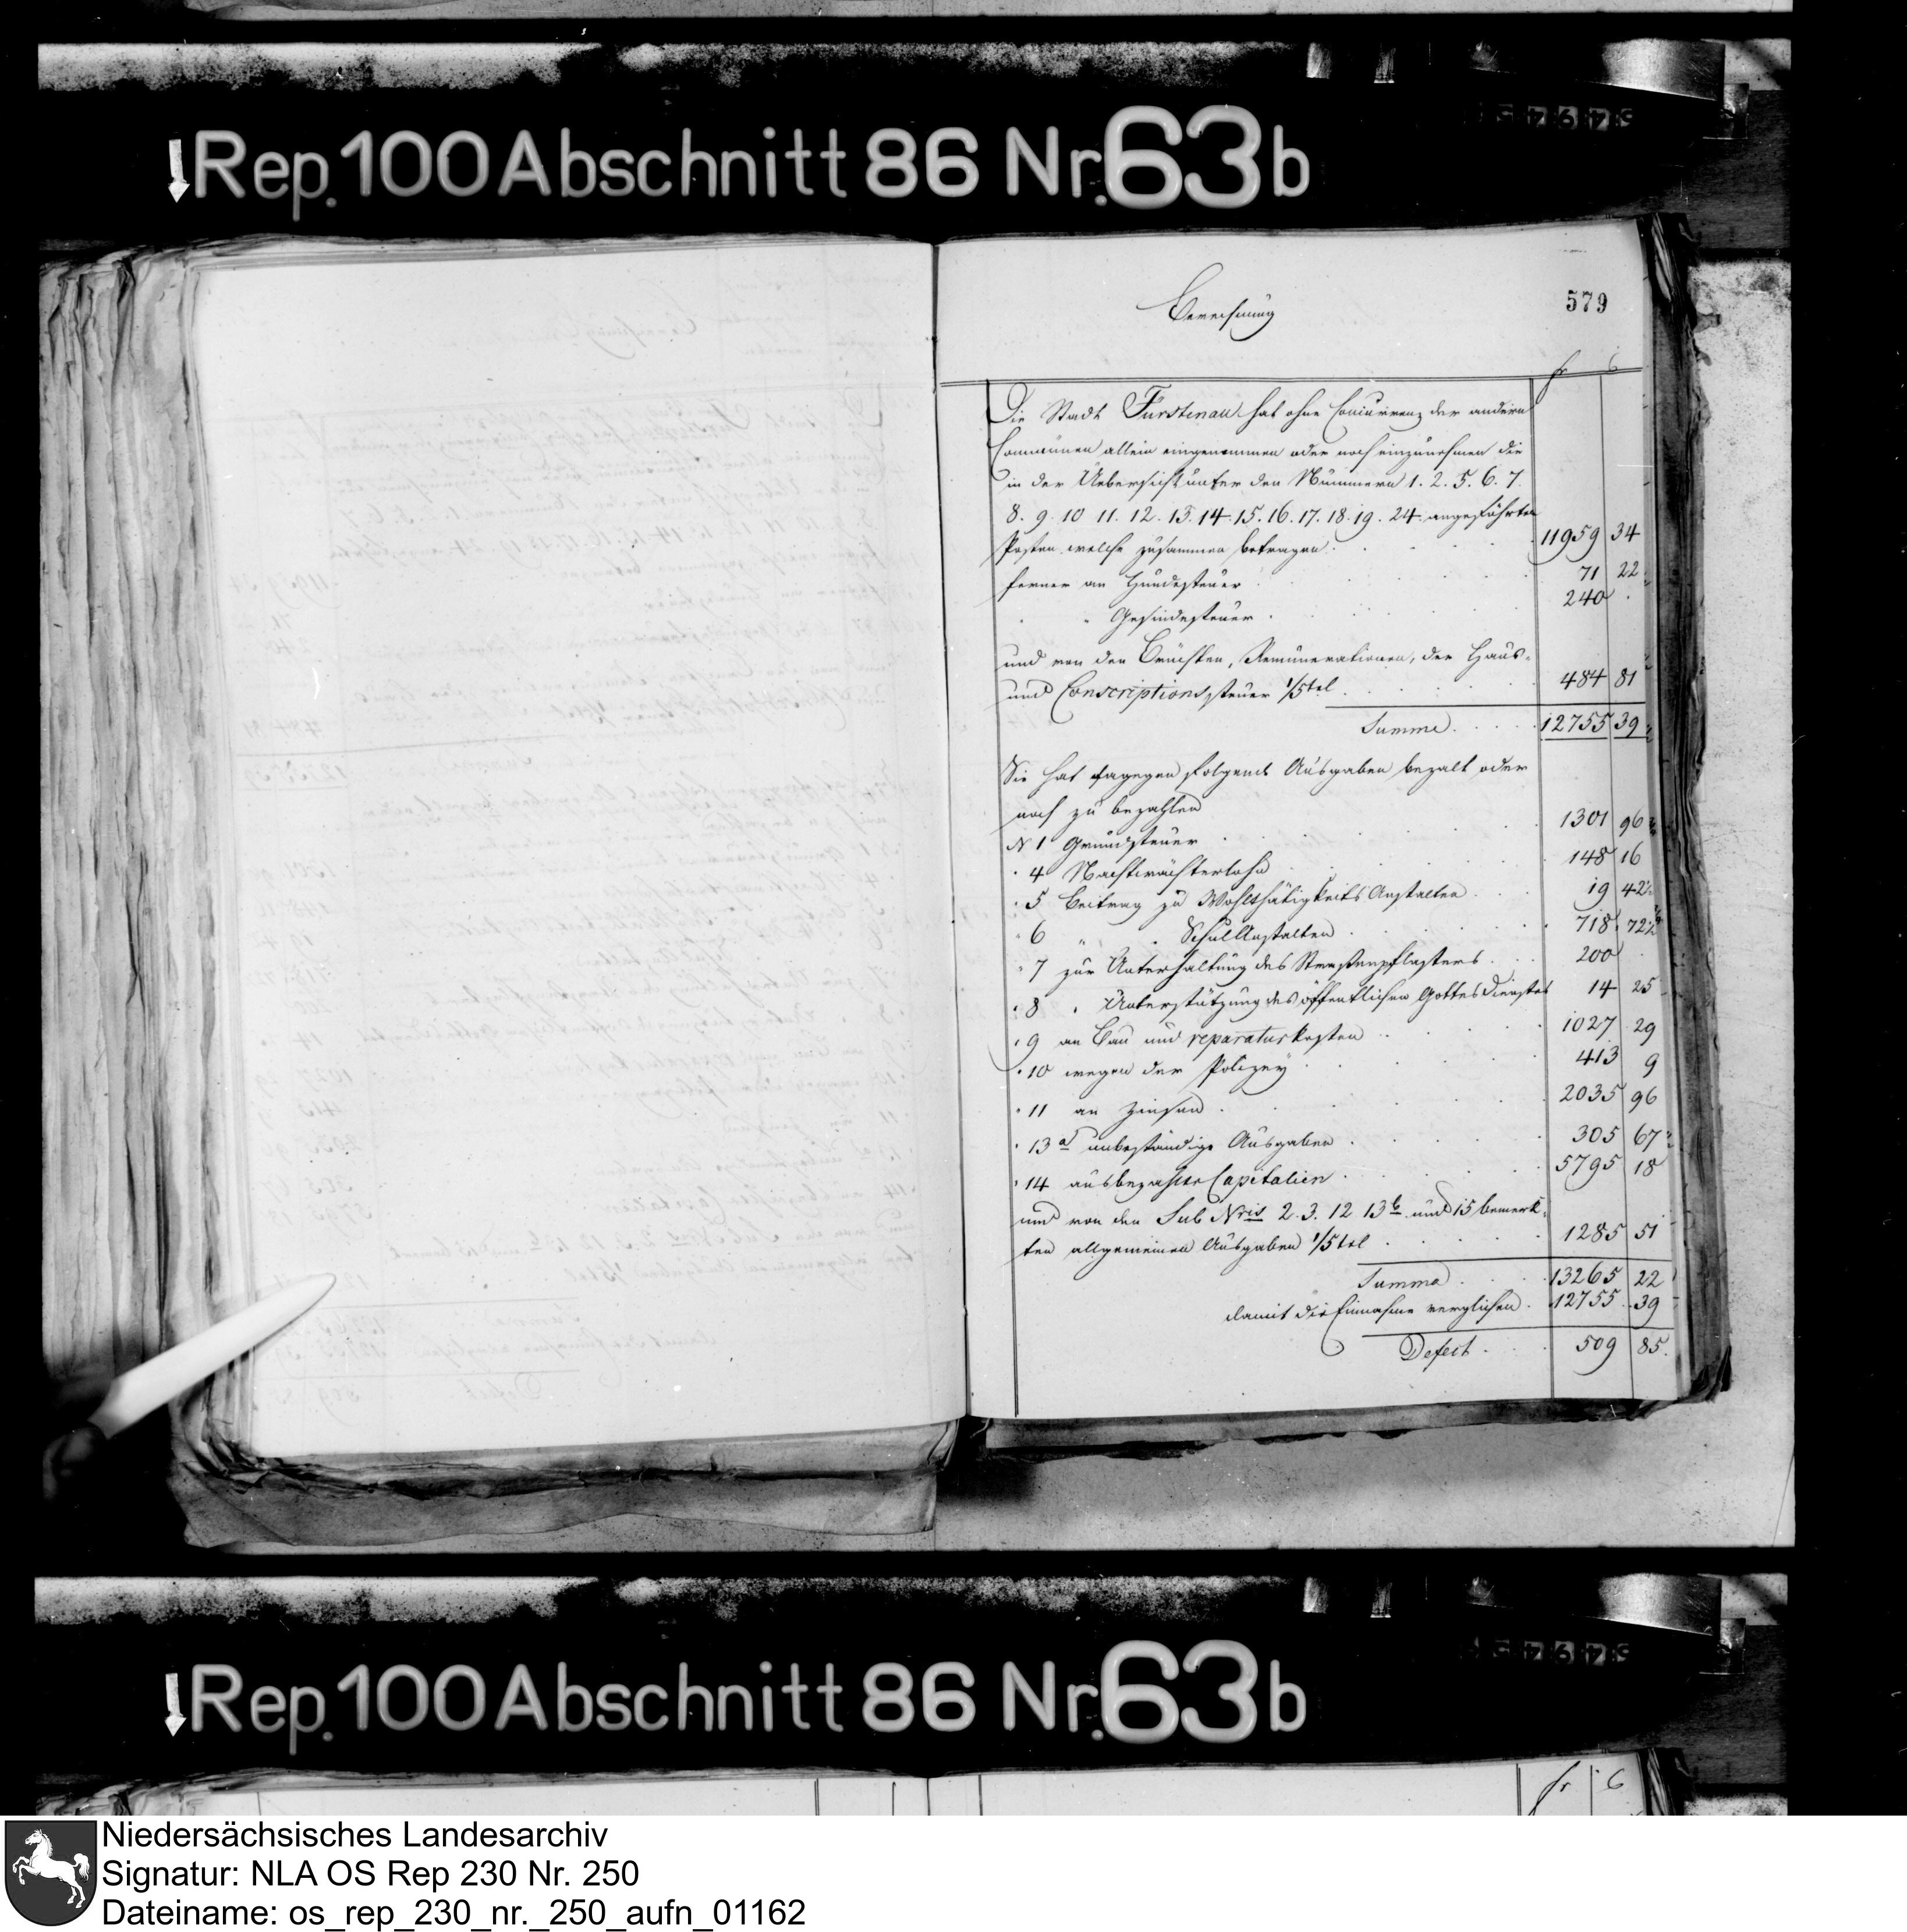 Rep. 100 Abschnitt 86 Nr. 63b
579
Berechnung
fr c
Die Stadt Fürstenau hat ohne Concurrenz der andern
Communen allein eingenommen oder noch einzunehmen die
in der Uebersicht unter den Nummern 1. 2. 5. 6. 7.
8. 9. 10 11. 12. 13. 14. 15. 16. 17. 18. 19. 24. angeführten
Posten welche zusammen betragen . 11959 34
ferner an Hundesteuer . 71 22
" Gesindesteuer . 240 .
und von den Brüchten, Remunerationen, der Haus-
und Conscriptionssteuer 1/5tel . 484 81
Summe . 12755 39
Sie hat dagegen folgende Ausgaben bezalt oder
noch zu bezahlen
N 1 Grundsteuer . 1301 96
" 4 Nachtwächterlohn . 148 16
" 5 Beitrag zu Wohlthätigkeits Anstalten . 19 42
" 6 " " Schul Anstalten . 718 72
" 7 zur Unterhaltung des Strassenpflasters . 200 .
" 8 " Unterstützung des öffentlichen Gottesdienstes 14 25
" 9 an Bau und reparaturkosten . 1027 29
" 10 wegen der Polizey . 413 9
" 11 an Zinsen . 2035 96
" 13 a unbeständige Ausgaben . 305 67
" 14 ausbezahlte Capitalien . 5795 18
und von den Sub Nris 2. 3. 12 13b und 15 bemerk-
ten allgemeinen Ausgaben 1/5tel . 1285 51
Summa . 13265 22
damit die Einnahme verglichen . 12755 39
Defect . 509 85.
Rep. 100 Abschnitt 86 Nr. 63b
fr c
Niedersächsisches Landesarchiv
Signatur: NLA OS Rep 230 Nr. 250
Dateiname: os_rep_230_nr._250_aufn_01162